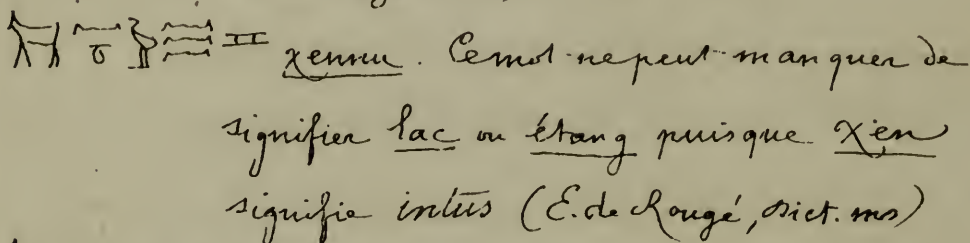 χennu. Ce mot ne peut manquer de
signifier lac ou étang puisque χen
signifie intùs (E. de Rougé, dict. ms)